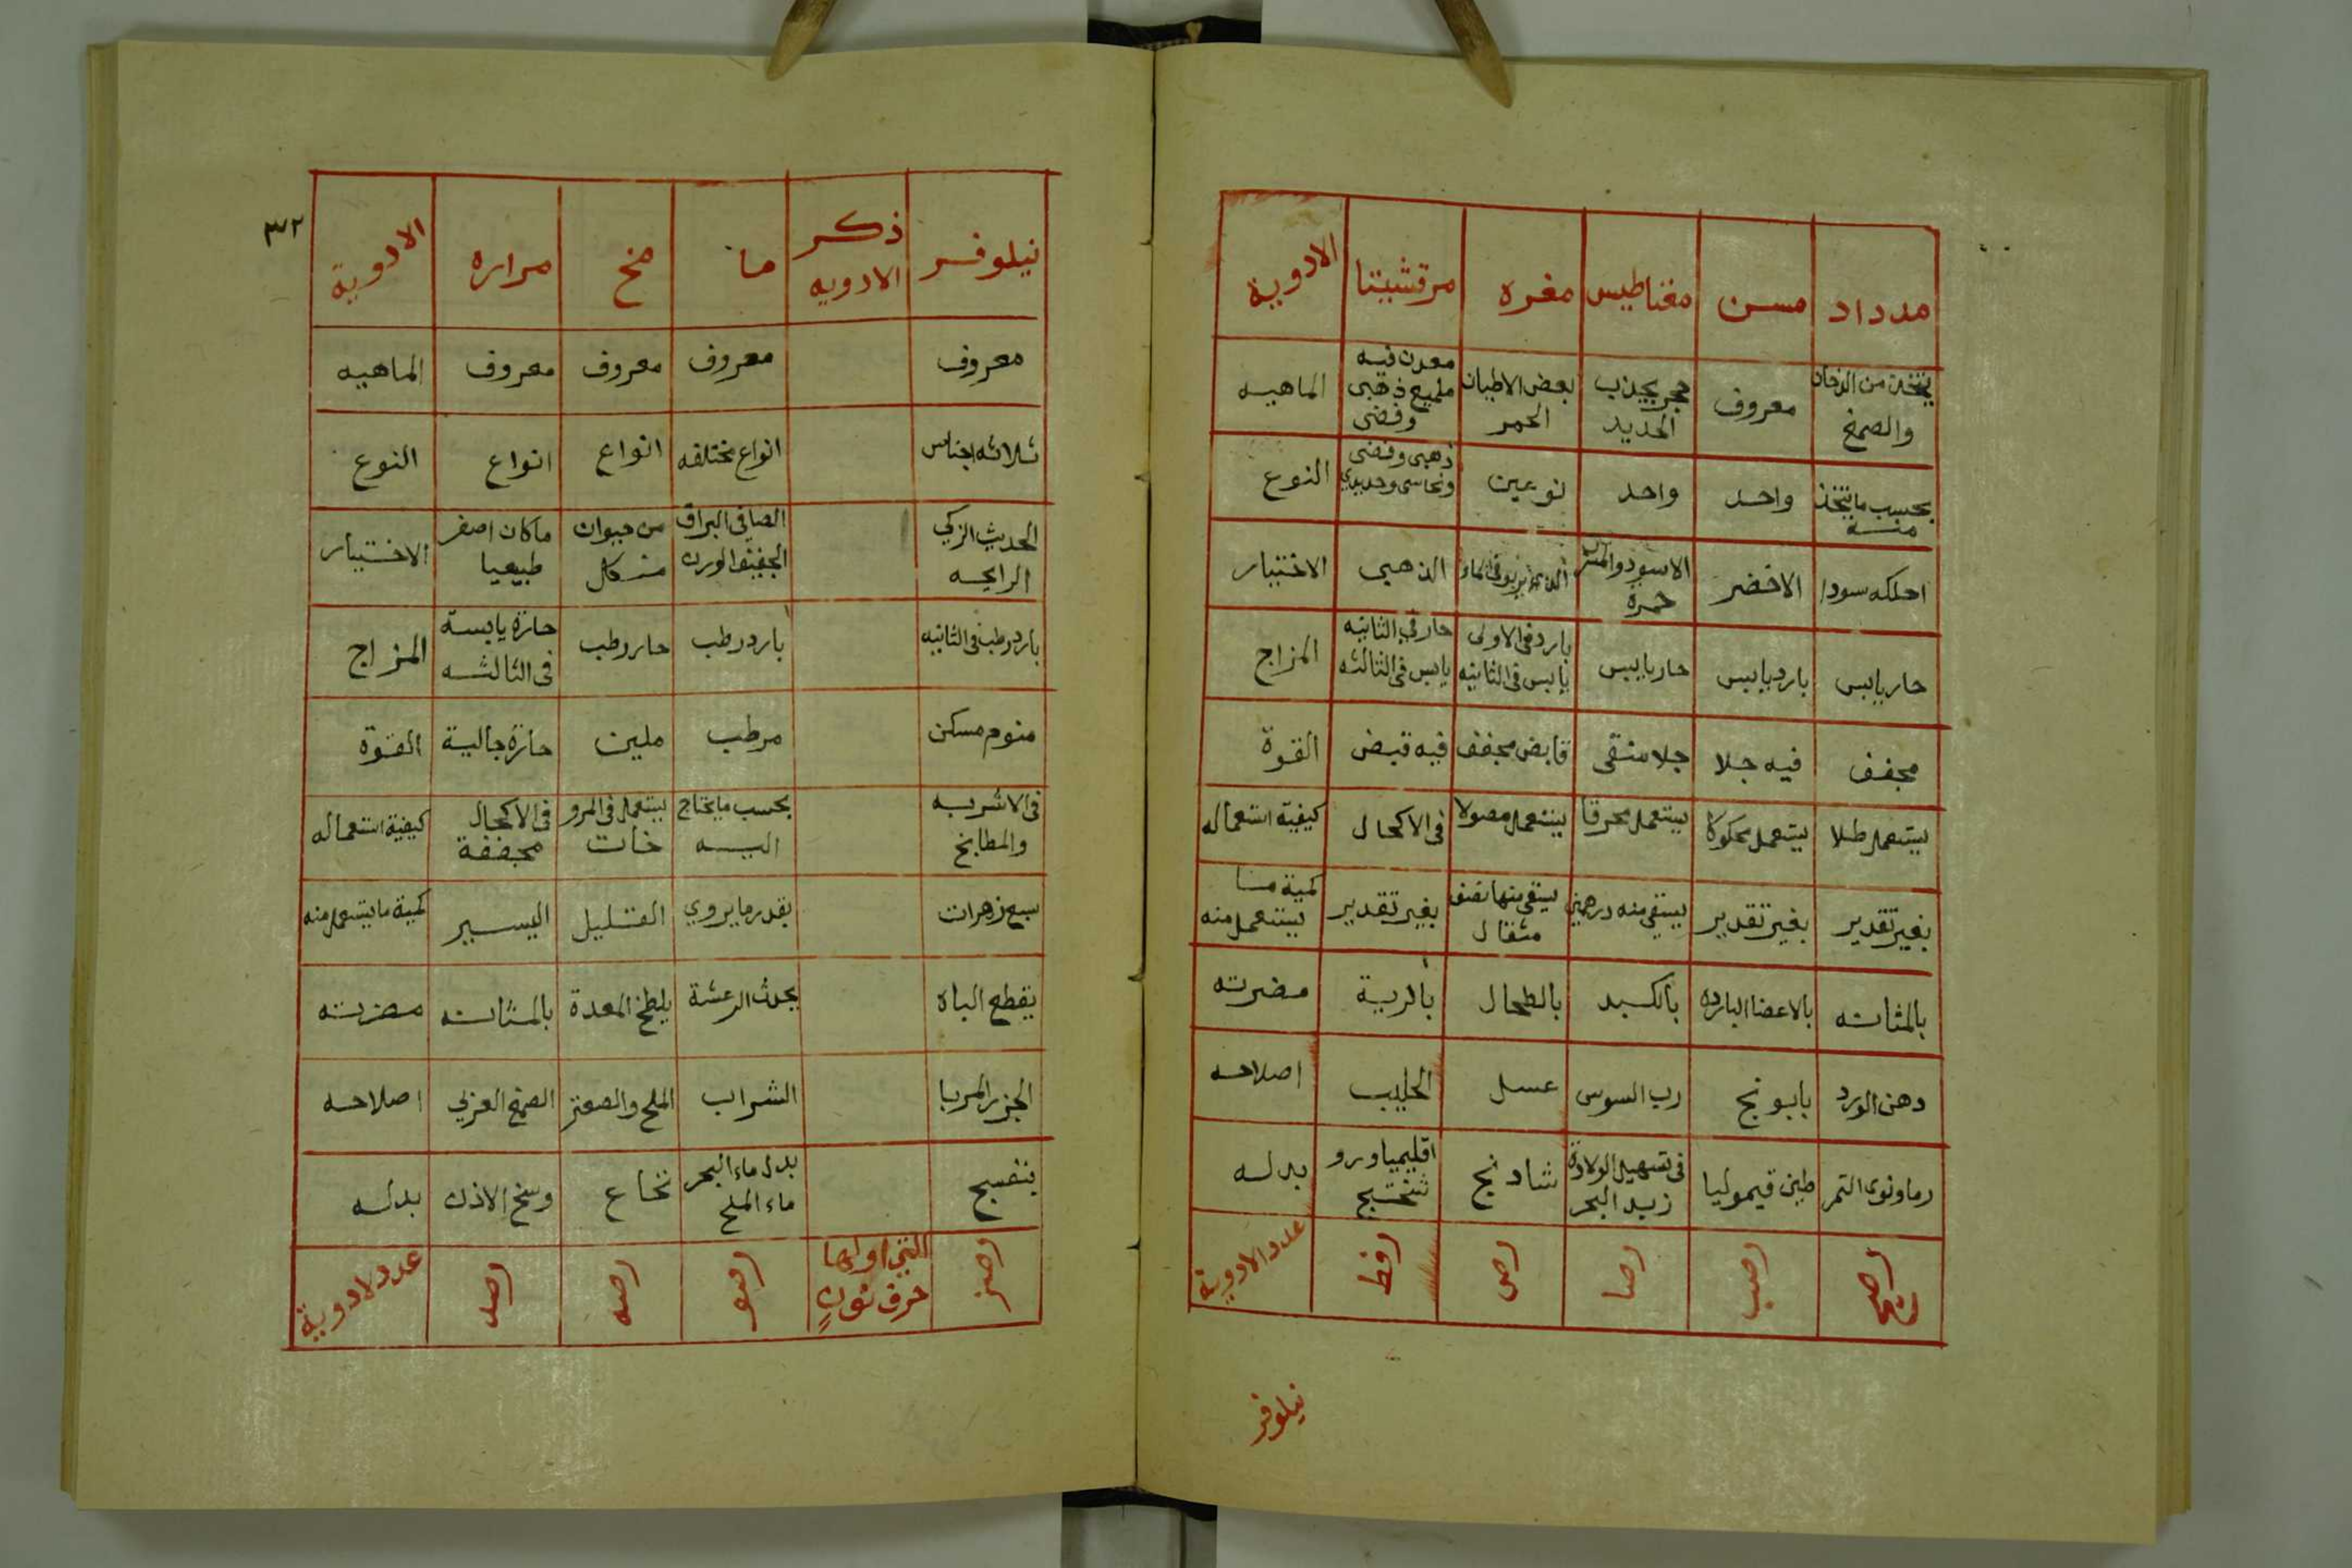 مدداد مسن مغناطيس مغره مرقشيتا الادوية
يتخذ من الدخان والصمغ معروف حجر يجذب الحديد بعض الاطيان الحمر معدن فيه مليح ذهبى وفضى الماهيه
بحسب ما يتخذ منه واحد واحد نوعين ذهبى وفضى ونحاسى وحديدي النوع
احلكه سودا الاخضر الاسود والمشرب حمرة الذي يربو فى الماء الذهبى الاختيار
حار يابس بارد يابس حار يابس بارد فى الاولى يابس فى الثانيه حار في الثانيه يابس فى الثالثه المزاج
مجفف فيه جلا جلا منقى قابض مجفف فيه قبض القوة
يستعمل طلا يستعمل محكوكا يستعمل محرقا يستعمل مصولا فى الاكحال كيفية استعماله
بغير تقدير بغير تقدير يسقى منه درهمين يسقى منها نصف مثقال بغير تقدير كمية ما يستعمل منه
بالمثانه بالاعضا البارده بالكبد بالطحال بالرية مضرته
دهن الورد بابونج رب السوس عسل الحليب اصلاحه
رماد نوى التمر طين قيموليا فى تسهيل الولادة زبد البحر شادنج اقليميا وروسختج بدله
رصب رصا رص رفط عدد الادوية
نيلوفر
٣٢
نيلوفر ذكر الادويه ما مخ مراره الادوية
معروف معروف معروف معروف الماهيه
ثلاثه اجناس انواع مختلفه انواع انواع النوع
الحديث الزكي الرايحه الصافي البراق الخفيف الوزن من حيوان ما كان اصفر طبيعيا الاختيار
بارد رطب فى الثانيه بارد رطب حار رطب حارة يابسة فى الثالثه المزاج
منوم مسكن مرطب ملين حارة جالية القوة
فى الاشربه والمطابخ بحسب ما يحتاج اليه يستعمل فى المروخات فى الاكحال مجففة كيفية استعماله
سبع زهرات بقدر ما يروي القليل اليسير كمية ما يستعمل منه
يقطع الباه يحدث الرعشة يلطخ المعدة بالمثانه مضرته
الجزر المربا الشراب الملح والصعتر الصمغ العربي اصلاحه
بنفسج بدل ماء البحر ماء الملح نخاع وسخ الاذن بدله
رصز التى اولها حرف نون رصو رصه رصد عدد الادوية